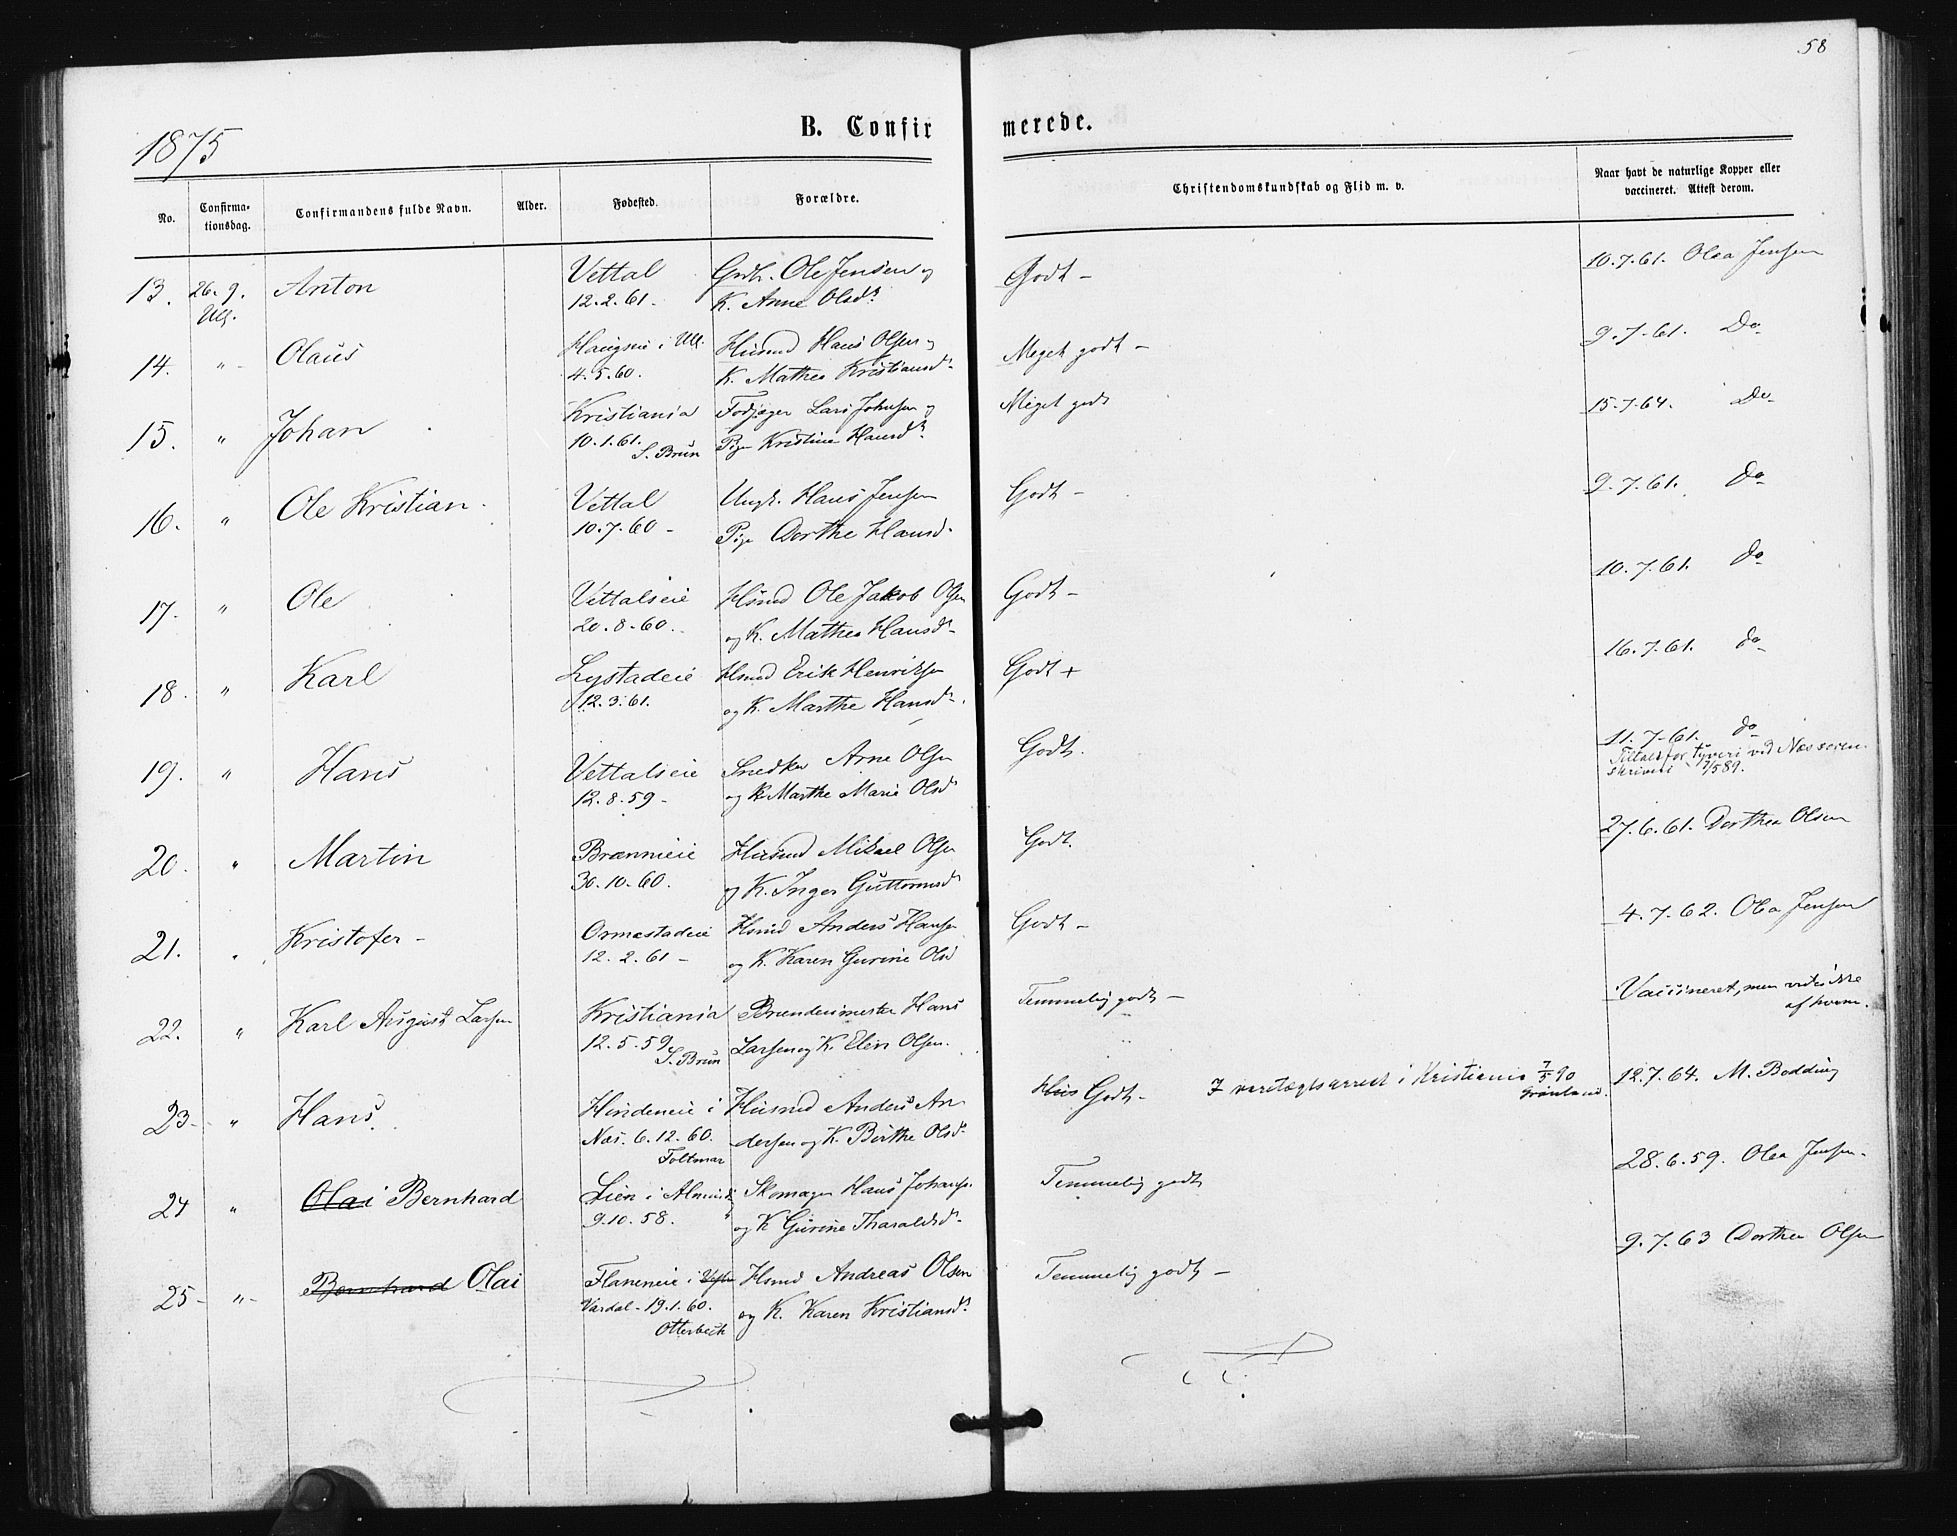 58
1875
B. Confirmerede.
No.
Confirma-
tionsdag.
Confirmandens fulde Navn.
Alder.
Fødested.
Forældre.
Christendomskundskab og Flid m. v.
Naar havt de naturlige Kopper eller
vaccineret. Attest derom.
13. 26. 9. Anton Vettal Grdbr. Ole Jensen og Godt - 10.7.61. Olea Jensen
Ull. 12.2.61. K. Anne Olsdr.
14. " Olaus Haugseie i Ull. Husmd Hans Olsen og Meget godt - 9.7.61. Do
4.5.60. K. Mathea Kristiansdr.
15. " Johan Kristiania Fodjæger Lars Johnsen og Meget godt 15.7.64. Do
10.1.61. S. Brun Pige Kristine Hansdr.
16. " Ole Kristian Vettal Ungk. Hans Jensen Godt - 9.7.61. do
10.7.60 - Pige Dorthe Hansd.
17. " Ole Vettalseie Hsmd Ole Jakob Olsen Godt - 10.7.61. do
20.8.60. og K. Mathea Hansdr.
18. " Karl Lystadeie Hsmd Erik Henriksen Godt + 16.7.61. do
12.3.61. og K. Marthe Hansdr.
19. " Hans Vettalseie Snedker Arne Olsen Godt. 11.7.61. do
12.8.59 - og K. Marthe Marie Olsdr
Tiltalt for tyveri ved Nes soren-
skriveri 7/5 89.
20. " Martin Brænneie Husmd Mikael Olsen Godt. 27.6.61. Dorthea Olsen
30.10.60. og K. Inger Guttormsdr
21. " Kristofer - Ormestadeie Hsmd Anders Hansen Godt - 4.7.62. Olea Jensen
12.2.61 - og K. Karen Gurine Olsd
22. " Karl August Larsen Kristiania Brænderimester Hans Temmelig godt - Vaccineret, men vides ikke
af hvem.
12.5.59. S. Brun Larsen og K. Elen Olsen.
23 - " Hans. Hindeneie i Husmd Anders An- Godt - I varetægtsarrest i Kristiania 7/5 90 12.7.64. M. Bodding
Grønland.
Næs. 6.12.60. dersen og K. Birthe Olsdr.
Foltmar
24 " Olai Bernhard Lien i Skomager Hans Johansen Temmelig godt 28.6.59. Olea Jensen.
9.10.58. " og K Gurine Tharaldsdr.
25 - " - Bernhard Olai Flaneneie i Hsmd Andreas Olsen Temmelig godt - 9.7.63 Dorthea Olsen
Vardal - 19.1.60. og K. Karen Kristiansdr.
Otterbech